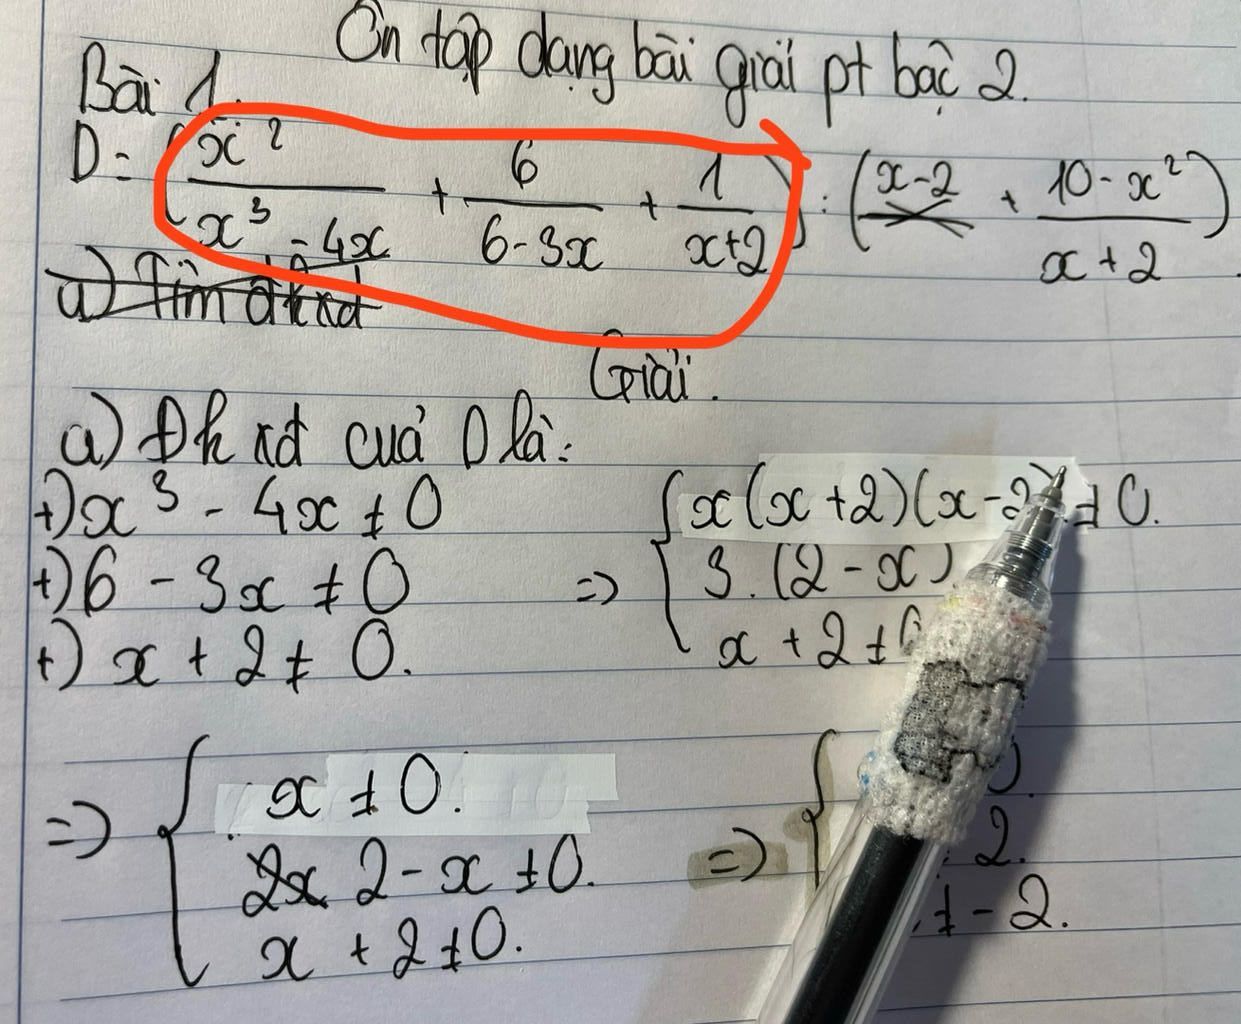 Ôn tập dạng bài giải pt bậc 2.
Bài 1.
D = (x²/(x³ - 4x) + 6/(6 - 3x) + 1/(x+2)) : (x-2 + (10 - x²)/(x + 2))
a) Tìm đkxđ
Giải.
a) Đkxđ của D là:
+) x³ - 4x ≠ 0
+) 6 - 3x ≠ 0
+) x + 2 ≠ 0.
=> { x(x+2)(x-2) ≠ 0.
3.(2-x)
x + 2 ≠ 0
=> { x ≠ 0.
2x 2 - x ≠ 0.
x + 2 ≠ 0.
=> { 0.
2.
≠ -2.